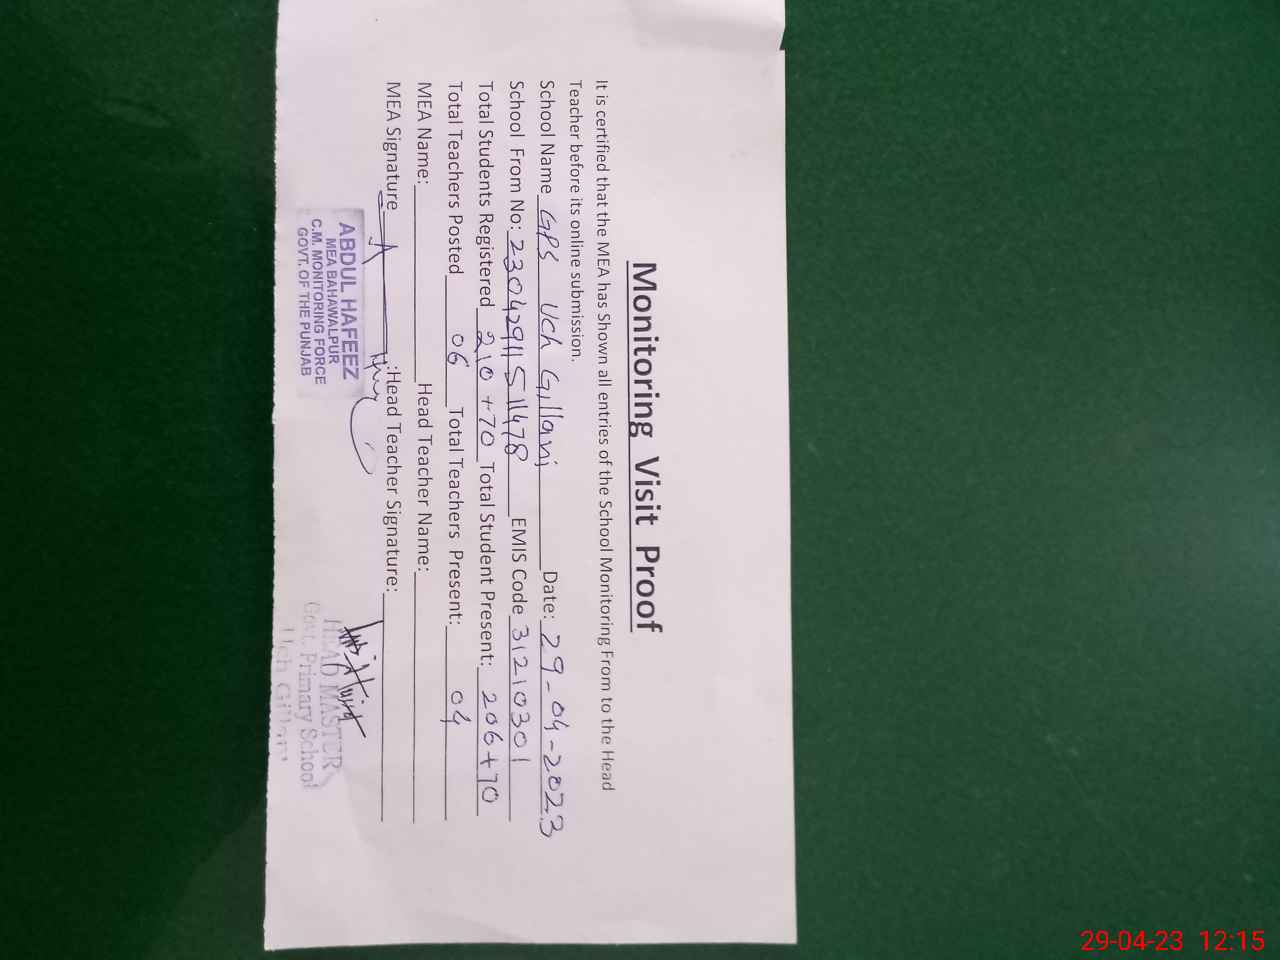 Monitoring Visit Proof
It is certified that the MEA has Shown all entries of the School Monitoring From to the Head
Teacher before its online submission.
School Name GPS Uch Gillani Date: 29-04-2023
School From No: 23042911511478 EMIS Code 31210301
Total Students Registered 210+70 Total Student Present: 206+70
Total Teachers Posted 06 Total Teachers Present: 04
MEA Name: Head Teacher Name:
MEA Signature :Head Teacher Signature:
ABDUL HAFEEZ
MEA BAHAWALPUR
C.M. MONITORING FORCE
GOVT. OF THE PUNJAB
HEAD MASTER
Govt. Primary School
Uch Gillani
29-04-23 12:15